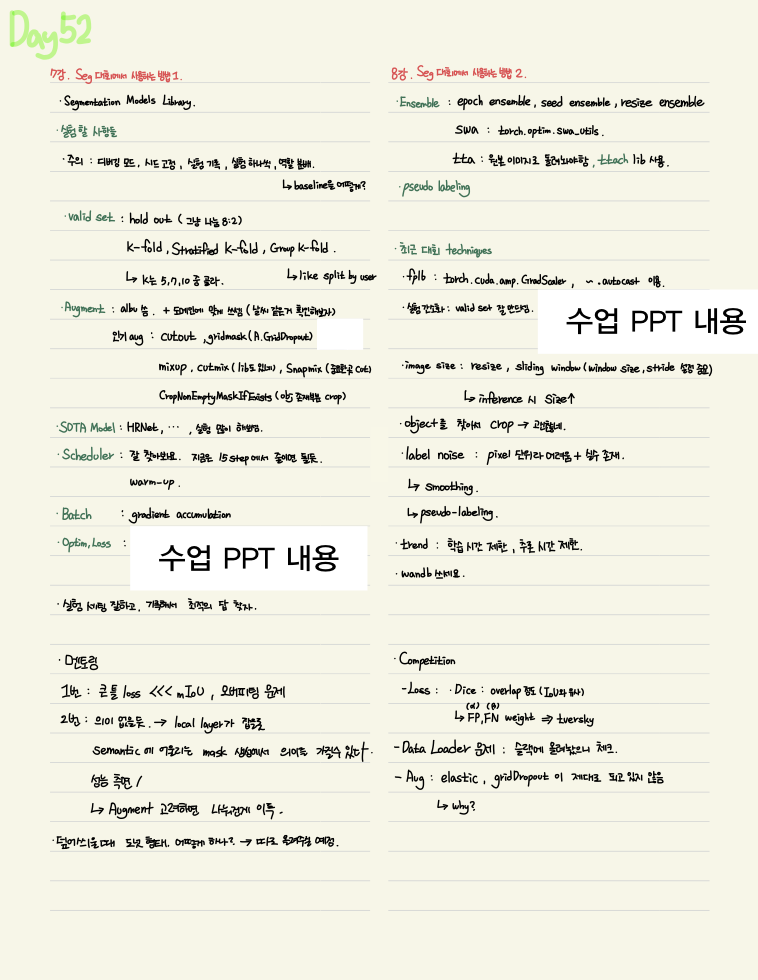 Day52
7강. Seg 대회에서 사용하는 방법 1.
· Segmentation Models Library.
· 실험할 사항들
· 주의 : 디버깅 모드, 시드 고정, 실험 기록, 실험 하나씩, 역할 분배.
↳ baseline을 어떻게?
· valid set : hold out ( 그냥 나눔 8:2)
K-fold, Stratified K-fold, Group K-fold.
↳ K는 5,7,10 중 골라. ↳ like split by user
· Augment : albu 씀. + 도메인에 맞게 쓰셈 (날씨 같은거 확인하셈)
인기 aug : cutout, gridmask (A.GridDropout)
mixup, cutmix (lib도 있네), Snapmix (중요한곳 cut)
CropNonEmptyMaskIfExists (obj 존재부분 crop)
· SOTA Model : HRNet, ..., 실험 많이 해봐.
· Scheduler : 잘 찾아보래요. 지금은 15 step에서 줄이면 될듯.
warm-up.
· Batch : gradient accumulation
· Optim, Loss :
수업 PPT 내용
· 실험 세팅 잘하고, 기록해서 최적의 답 찾자.
· 멘토링
1번 : 큰틀 loss <<< mIoU, 오버피팅 문제
2번 : 의미 없을듯. → local layer가 잡을듯
Semantic에 어울리는 mask 생성에서 의미를 가질수 있다.
성능 측면 /
↳ Augment 고려하면 나눠걸게 이득.
· 덮어쓰기할때 도넛 형태. 어떻게 하나? → 따로 올려주실 예정.
8강. Seg 대회에서 사용하는 방법 2.
· Ensemble : epoch ensemble, seed ensemble, resize ensemble
SWA : torch.optim.swa_utils.
tta : 원본 이미지로 돌려놔야함, ttach lib 사용.
· pseudo labeling
· 최근 대회 techniques
· fp16 : torch.cuda.amp.GradScaler, ~.autocast 이용.
· 실험 간소화 : valid set 잘 만드셈.
수업 PPT 내용
· image size : resize, sliding window (window size, stride 설정 중요)
↳ inference 시 Size↑
· object를 찾아서 crop → 괜찮네.
· label noise : pixel 단위라 어려움 + 실수 존재.
↳ smoothing.
↳ pseudo-labeling.
· trend : 학습 시간 제한, 추론 시간 제한.
· wandb 쓰세요.
· Competition
- Loss : · Dice : overlap 정도 (IoU와 유사)
(α) (β)
↳ FP, FN weight ⇒ tversky
- Data Loader 문제 : 슬랙에 올려놨으니 체크.
- Aug : elastic, gridDropout 이 제대로 되고 있지 않음
↳ why?